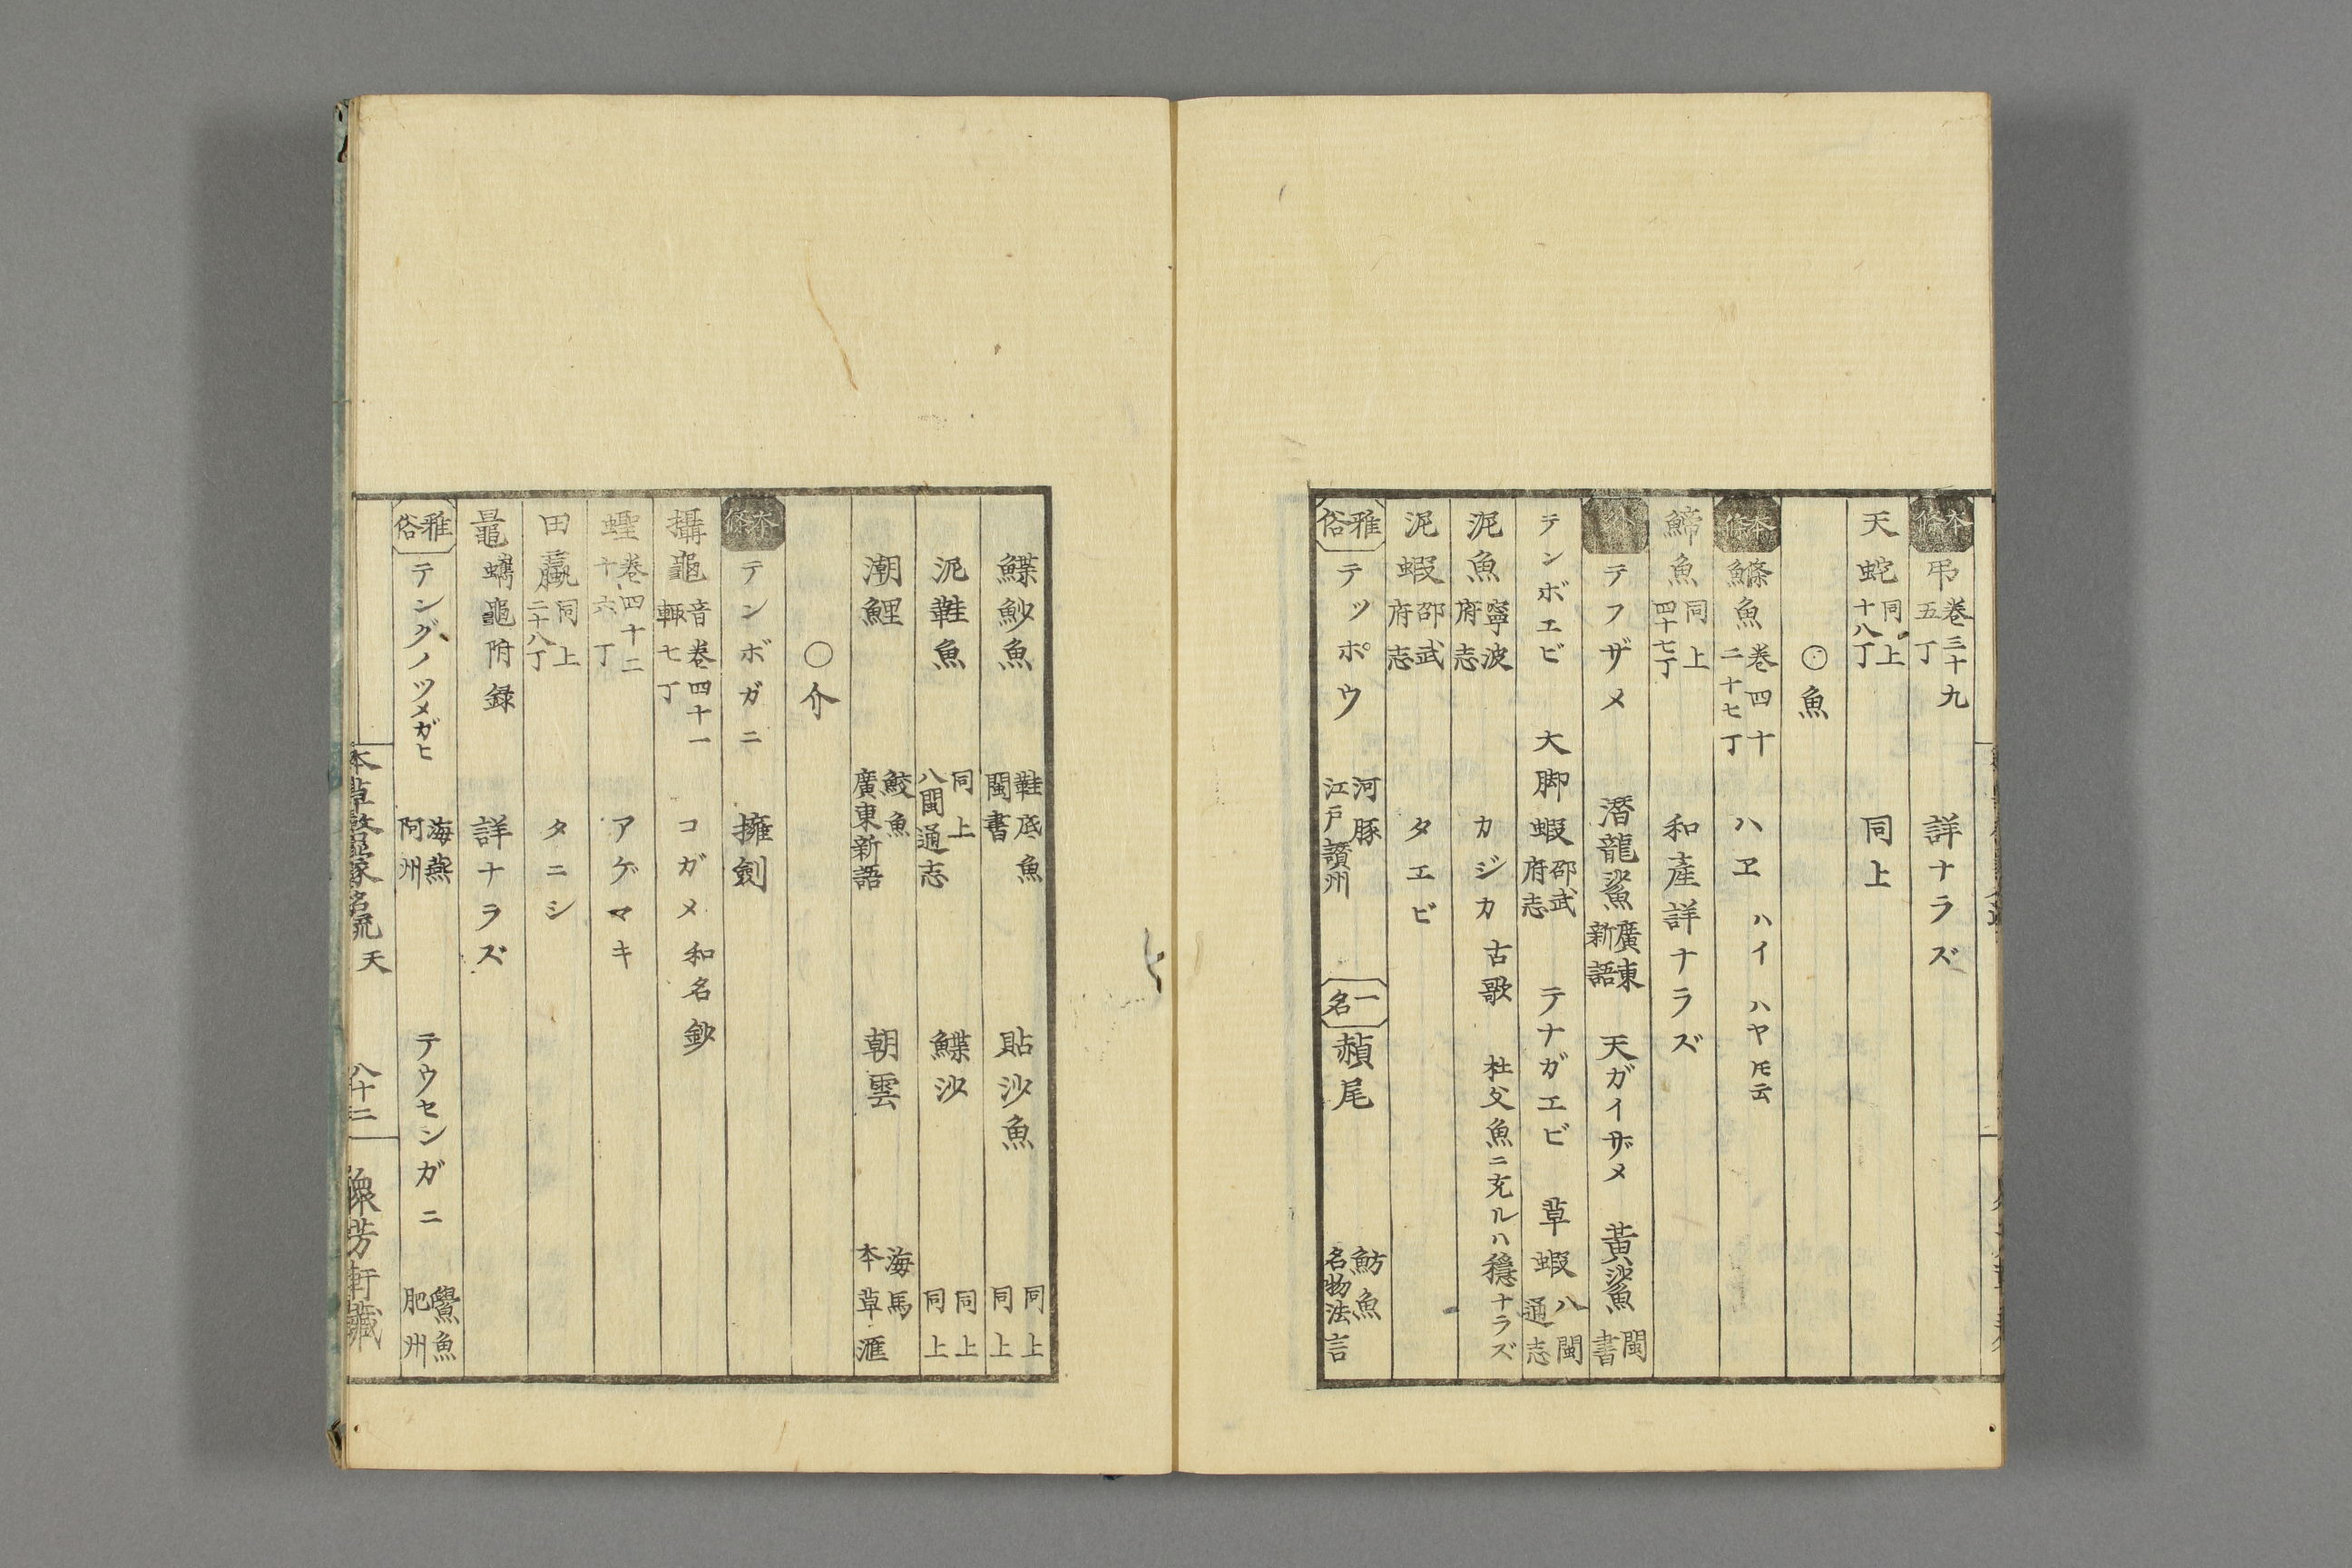 本條 弔 卷三十九五丁 詳ナラズ
天蛇 同上十八丁 同上
○魚
本條 鰷魚 卷四十二十七丁 ハヱ ハイ ハヤ𪜈云
鯑魚 同上四十七丁 和產詳ナラズ
外 テフザメ 潛龍鯊 廣東新語 天ガイザメ 黃鯊 閩書
テンボエビ 大脚蝦 邵武府志 テナガエビ 草蝦 八閩通志
泥魚 寧波府志 カジカ 古歌 杜父魚ニ充ルハ穩ナラズ
泥蝦 邵武府志 タエビ
雅俗 テッポウ 河豚 江戶讃州 一名 赬尾 魴魚 名物法言
鰈魦魚 鞋底魚 閩書 貼沙魚 同上 同上
泥鞋魚 同上 八閩通志 鰈沙 同上 同上
潮鯉 鮫魚 廣東新語 朝雲 海馬 本草滙
○介
本條 テンボガニ 擁劍
攝龜 音輒 卷四十一七丁 コガメ 和名鈔
蟶 卷四十二十六丁 アゲマキ
田蠃 同上二十八丁 タニシ
鼂 蠵龜附録 詳ナラズ
雅俗 テングノツメガヒ 海燕 阿州 テウセンガニ 鱟魚 肥州
本草 名疏 天 八十二 芳軒藏